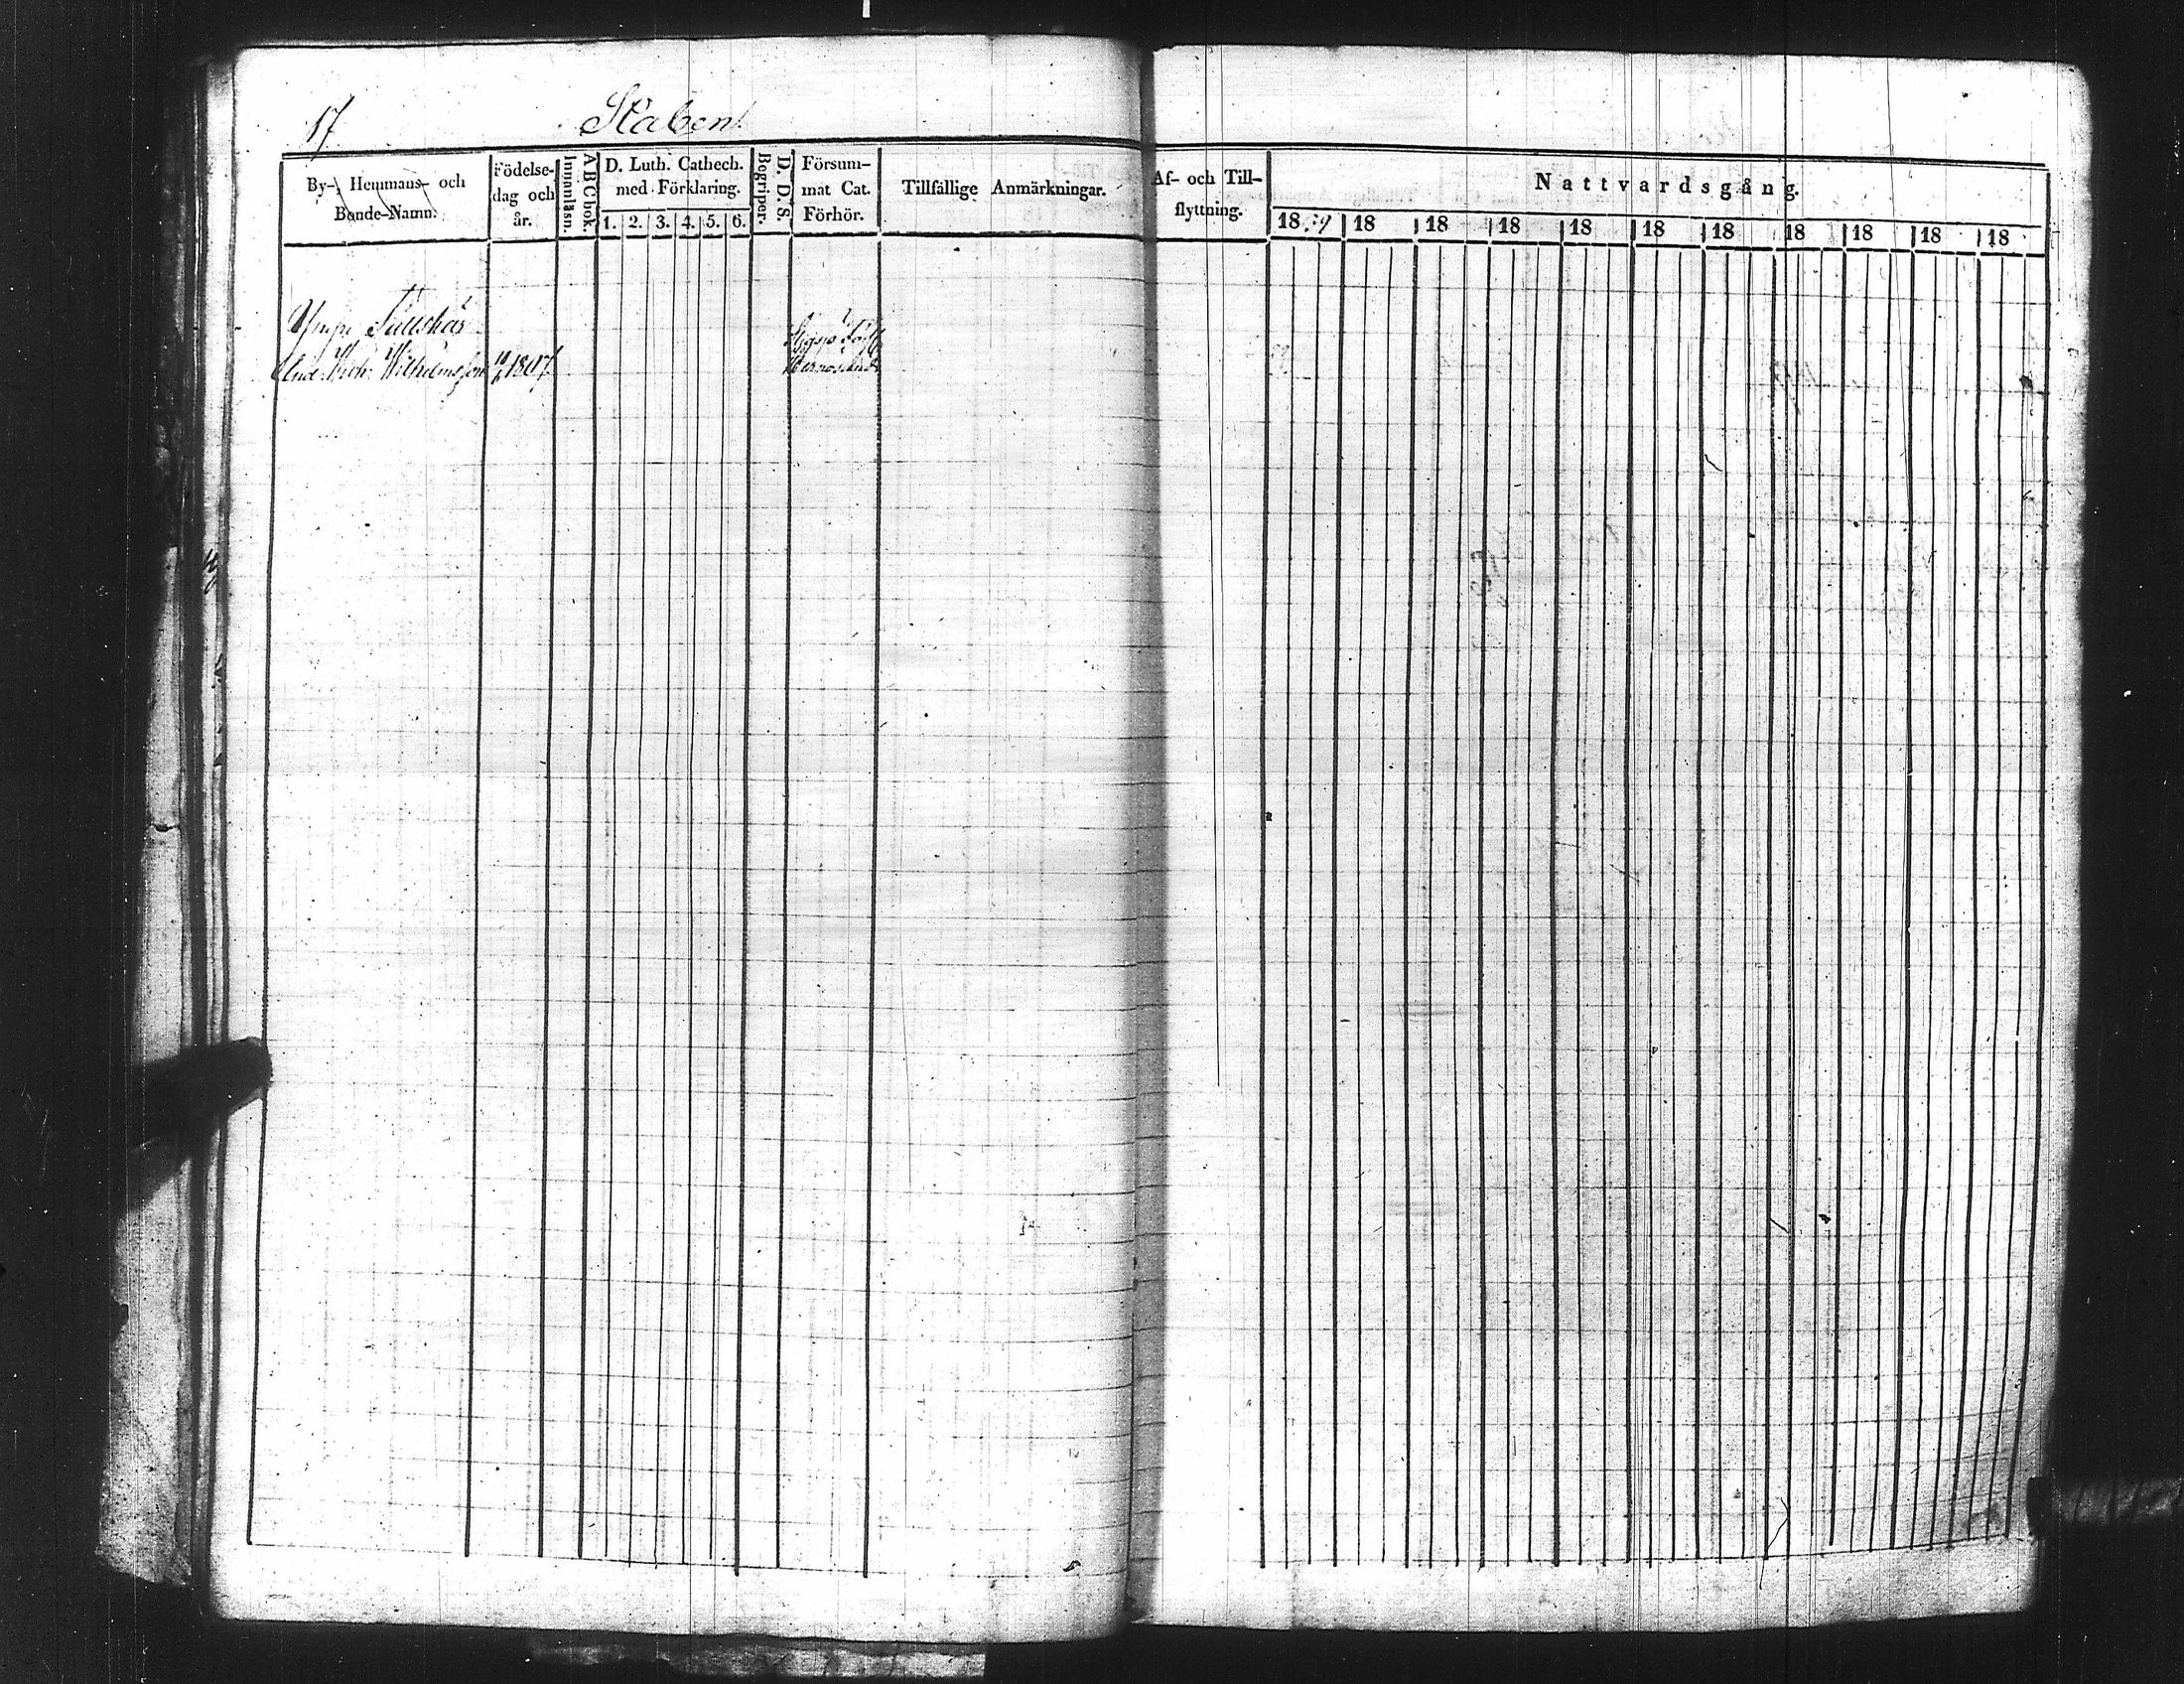 17
Staben
By-, Hemmans- och Bonde-Namn.
Födelse-dag och år.
Innanläsn.
A B C bok.
D. Luth. Cathech. med Förklaring.
1. 2. 3. 4. 5. 6.
Begriper.
D. D. S.
Försum-mat Cat. Förhör.
Tillfällige Anmärkningar.
Af- och Till-flyttning.
Nattvardsgång.
1839 18 18 18 18 18 18 18 18 18 18
And: Wilhelmsson 1807